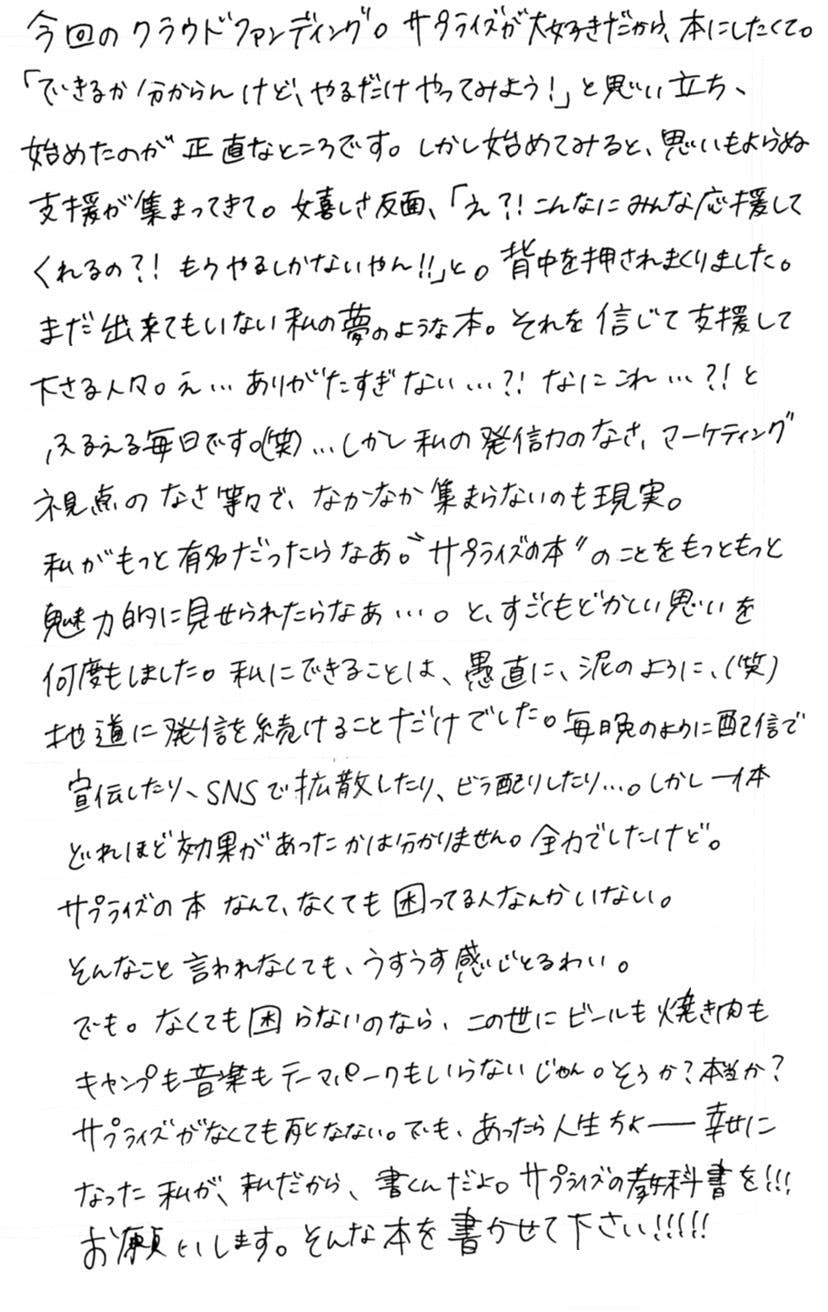 今回のクラウドファンディング。サプライズが大好きだから、本にしたくて。
「できるか分からんけど、やるだけやってみよう!」と思い立ち、
始めたのが正直なところです。しかし始めてみると、思いもよらぬ
支援が集まってきて。嬉しさ反面、「え?!こんなにみんな応援して
くれるの?!もうやるしかないやん!!」と。背中を押されまくりました。
まだ出来てもいない私の夢のような本。それを信じて支援して
下さる人々。え…ありがたすぎない…?!なにこれ…?!と
ふるえる毎日です。(笑)…しかし私の発信力のなさ、マーケティング
視点のなさ等々で、なかなか集まらないのも現実。
私がもっと有名だったらなあ。“サプライズの本”のことをもっともっと
魅力的に見せられたらなあ…。と、すごくもどかしい思いを
何度もしました。私にできることは、愚直に、泥のように、(笑)
地道に発信を続けることだけでした。毎晩のように配信で
宣伝したり、SNSで拡散したり、ビラ配りしたり…。しかし一体
どれほど効果があったかは分かりません。全力でしたけど。
サプライズの本なんて、なくても困ってる人なんかいない。
そんなこと言われなくても、うすうす感じとるわい。
でも。なくても困らないのなら、この世にビールも焼き肉も
キャンプも音楽もテーマパークもいらないじゃん。そうか?本当か?
サプライズがなくても死なない。でも、あったら人生ちょー幸せに
なった私が、私だから、書くんだよ。サプライズの教科書を!!!
お願いします。そんな本を書かせて下さい!!!!!